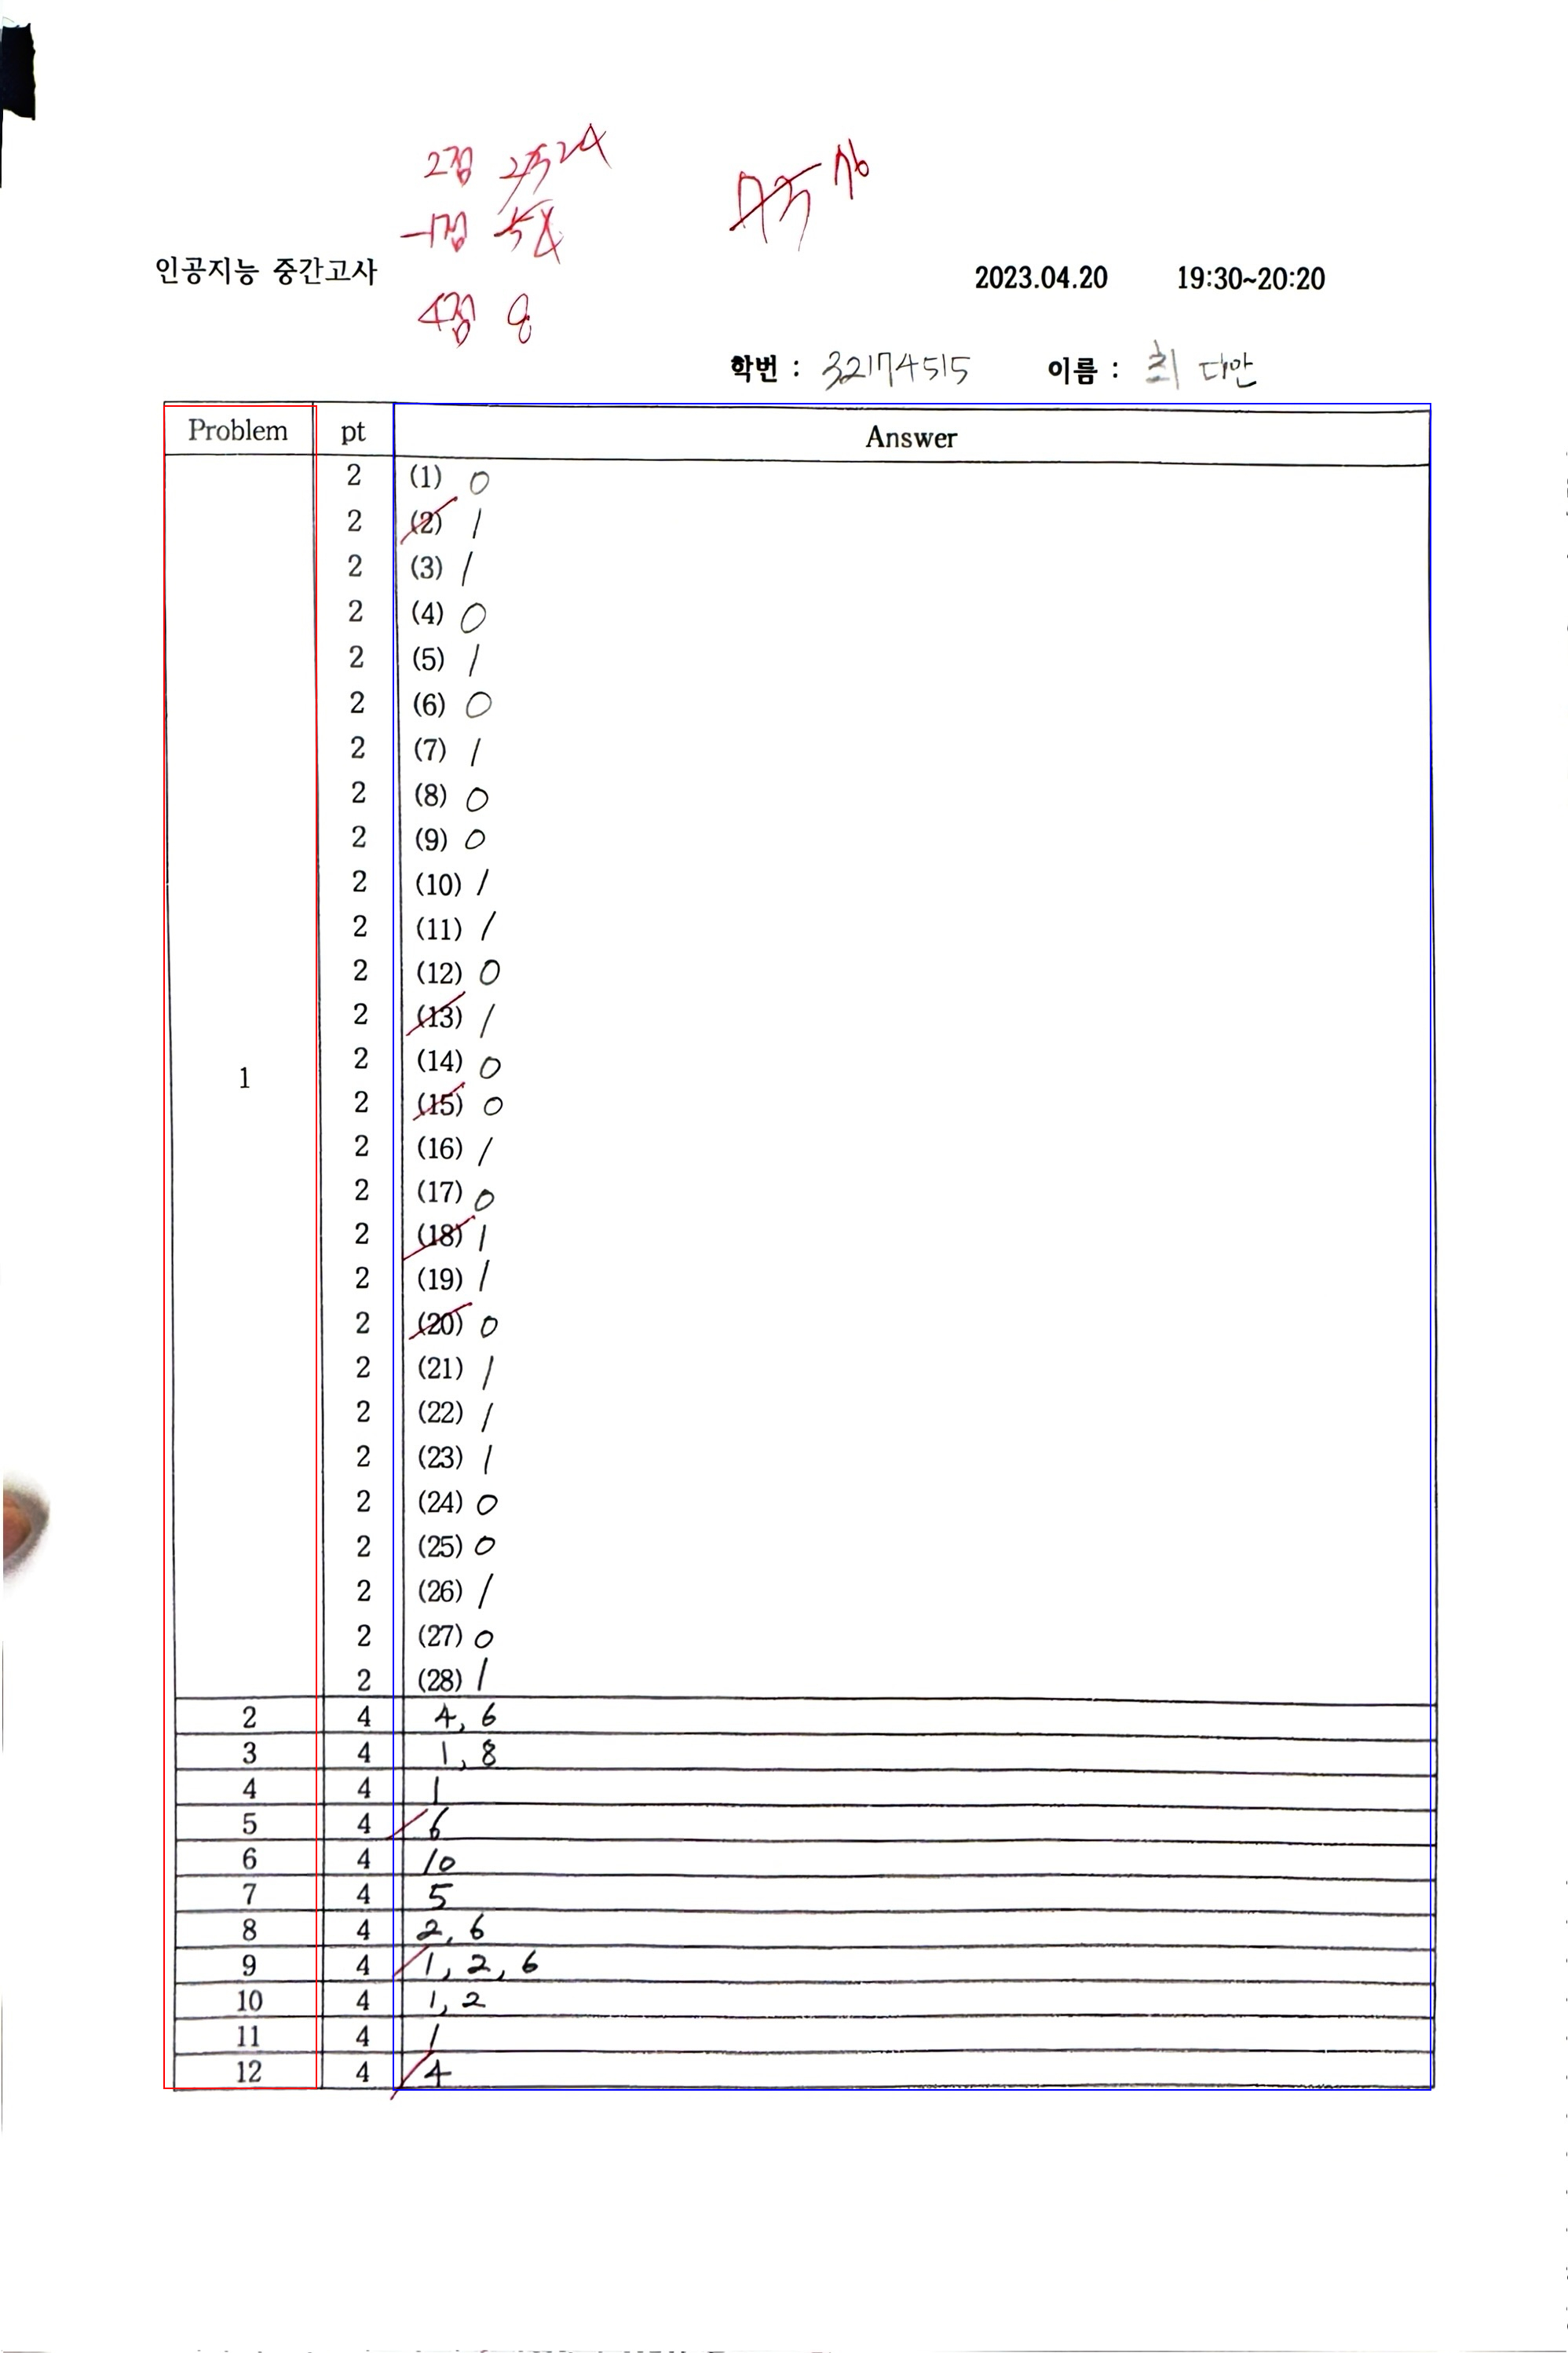 2점 24
-1점 4
4점 8
76
인공지능 중간고사 2023.04.20 19:30~20:20
학번 : 32174515 이름 : 최 다안
Problem pt Answer
1
2 (1) 0
2 (2) 1
2 (3) 1
2 (4) 0
2 (5) 1
2 (6) 0
2 (7) 1
2 (8) 0
2 (9) 0
2 (10) 1
2 (11) 1
2 (12) 0
2 (13) 1
2 (14) 0
2 (15) 0
2 (16) 1
2 (17) 0
2 (18) 1
2 (19) 1
2 (20) 0
2 (21) 1
2 (22) 1
2 (23) 1
2 (24) 0
2 (25) 0
2 (26) 1
2 (27) 0
2 (28) 1
2 4 4, 6
3 4 1, 8
4 4 1
5 4 6
6 4 10
7 4 5
8 4 2, 6
9 4 1, 2, 6
10 4 1, 2
11 4 1
12 4 4